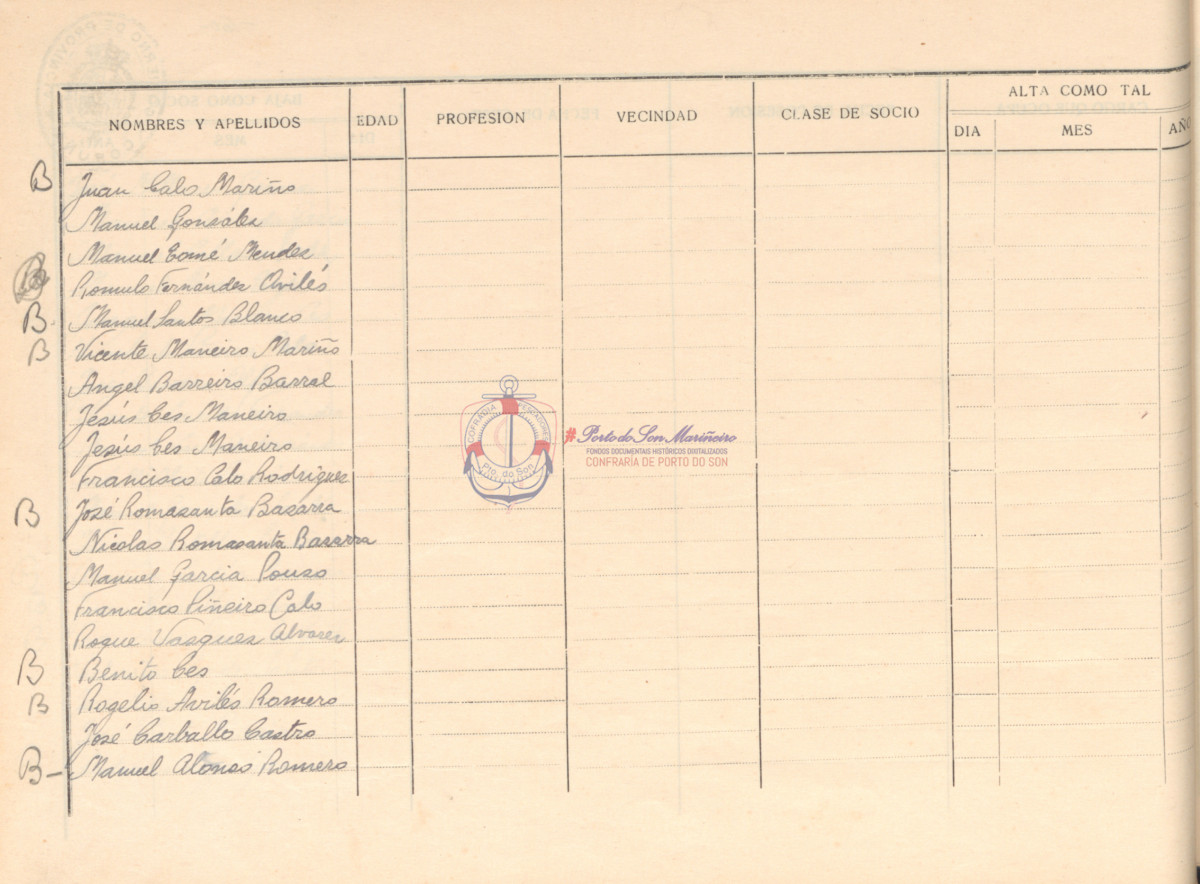 ALTA COMO TAL
NOMBRES Y APELLIDOS EDAD PROFESION VECINDAD CLASE DE SOCIO DIA MES AÑO
B Juan Calo Mariño
Manuel González
Manuel Tomé Mendez
Romulo Fernández Avilés
B. Manuel Santos Blanco
B Vicente Maneiro Mariño
Angel Barreiro Barral
Jesús Ces Maneiro
Jesús Ces Maneiro
Francisco Calo Rodriguez
B José Romasanta Basarra
Nicolas Romasanta Basarra
Manuel Garcia Pouso
Francisco Piñeiro Calo
Roque Vasquez Alvarez
B Benito Ces
B Rogelio Avilés Romero
José Carballo Castro
B- Manuel Alonso Romero
COFRADIA PESCADORES
Pto. do Son
#Porto do Son Mariñeiro
FONDOS DOCUMENTAIS HISTÓRICOS DIXITALIZADOS
CONFRARÍA DE PORTO DO SON